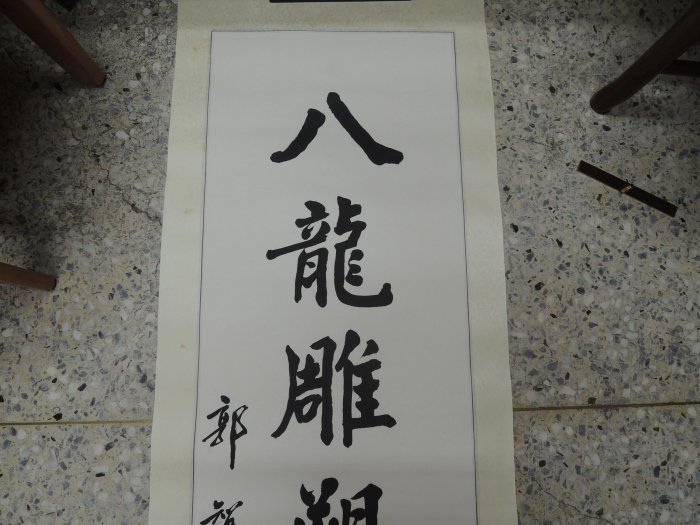 八龍雕塑
郭